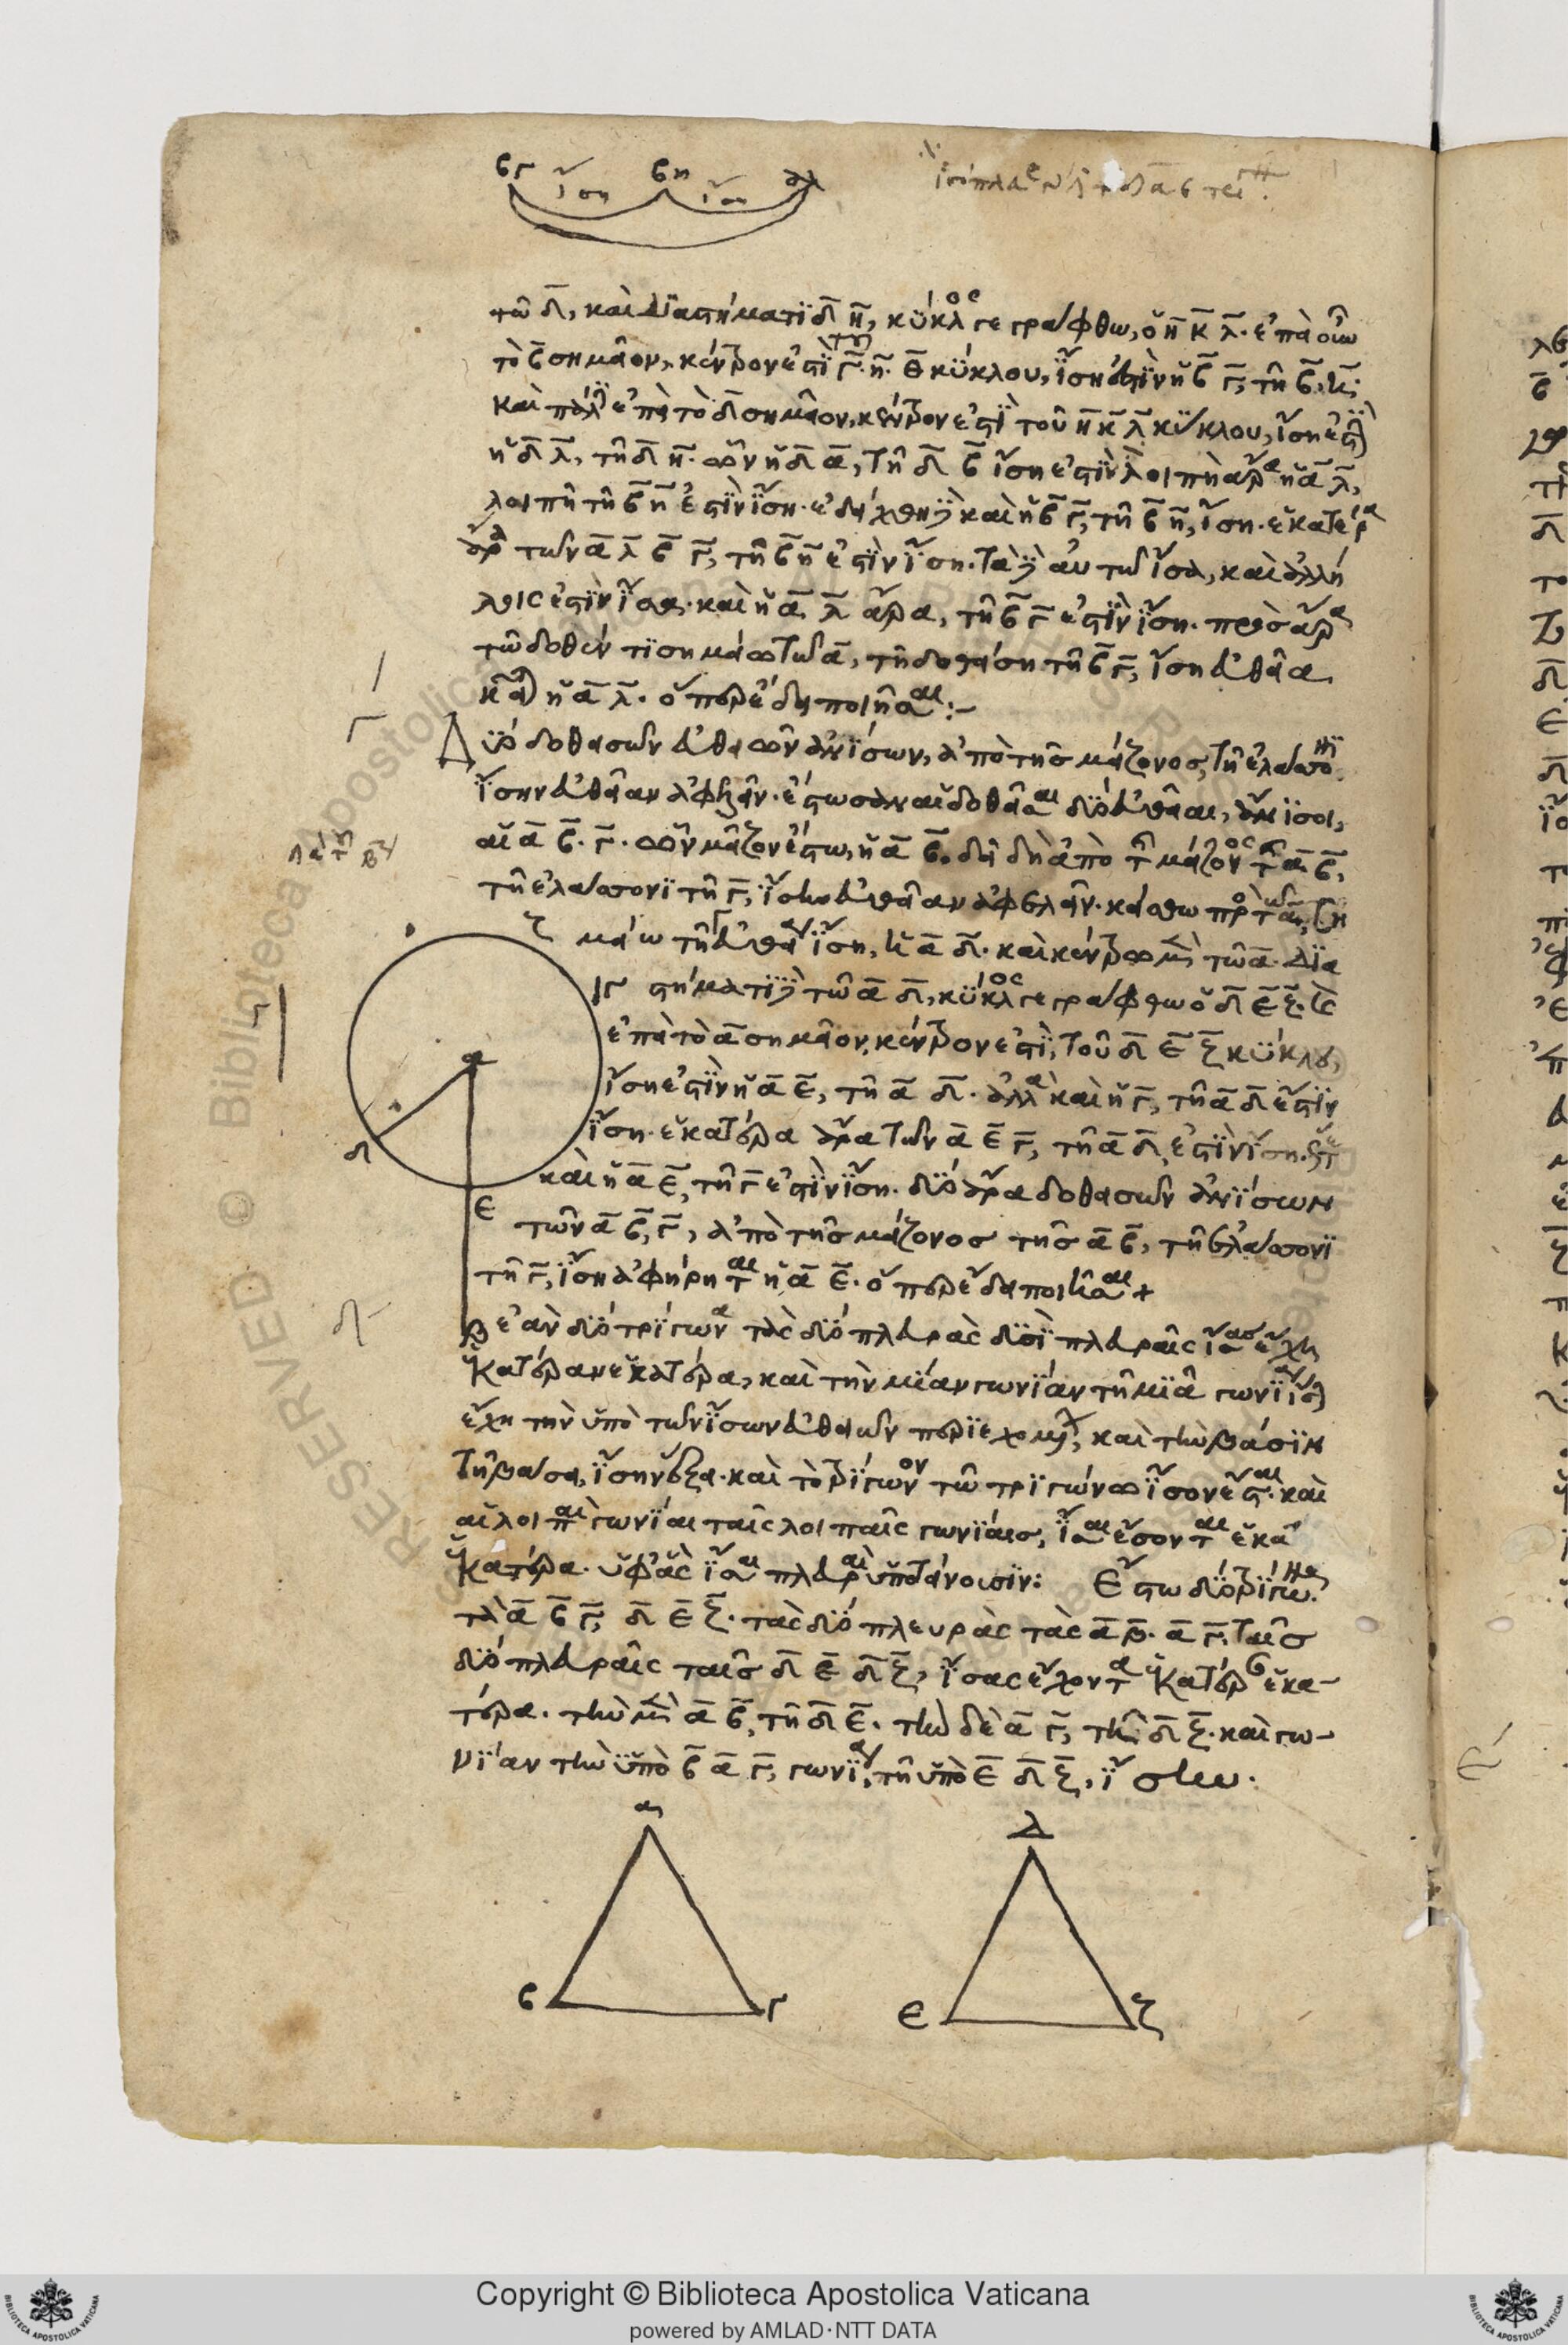 ϛγ ἴση ϛη ἴση αλ
τῶ δ, καὶ διαστήματι δ η, κύκλος γεγράφθω, ὁ η κ λ. ἐπεὶ οὖν
τὸ β σημεῖον, κέντρον ἐστὶ τοῦ γ. η. θ κύκλου, ἴση ἐστὶν ἡ β γ, τῆ β η.
καὶ πάλιν ἐπεὶ τὸ δ σημεῖον, κέντρον ἐστὶ τοῦ η κ λ κύκλου, ἴση ἐστὶν
ἡ δ λ, τῆ δ η. ὧν ἡ δ α, τῆ δ β ἴση ἐστὶν λοιπὴ ἄρα ἡ α λ,
λοιπῆ τῆ β η ἐστὶν ἴση. ἐδείχθη δὲ καὶ ἡ β γ, τῆ β η, ἴση. ἑκατέρα
ἄρα τῶν α λ β γ, τῆ β η ἐστὶν ἴση. τὰ δὲ αὐτῶ ἴσα, καὶ ἀλλή
λοις ἐστὶν ἴσα. καὶ ἡ α λ ἄρα, τῆ β γ ἐστὶν ἴση. πρὸς ἄρα
τῶ δοθέντι σημείω τῶ α, τῆ δοθείση τῆ β γ, ἴση εὐθεῖα
κεῖται ἡ α λ. ὅπερ ἔδει ποιῆσαι:-
γ
Δύο δοθεισῶν εὐθειῶν ἀνίσων, ἀπὸ τῆς μείζονος, τῆ ἐλάσσονι
ἴσην εὐθεῖαν ἀφελεῖν. ἔστωσαν αἱ δοθεῖσαι δύο εὐθεῖαι, ἄνισοι,
αἱ α β. γ. ὧν μείζων ἔστω, ἡ α β. δεῖ δὴ ἀπὸ τῆς μείζονος τῆς α β,
τῆ ἐλάσσονι τῆ γ, ἴσην εὐθεῖαν ἀφελεῖν. κείσθω πρὸς τῶ α, ση
ζ
μείω τῆ γ εὐθεία ἴση, ἡ α δ. καὶ κέντρω μὲν τῶ α. δια
γ
στήματι δὲ τῶ α δ, κύκλος γεγράφθω ὁ δ ε ζ. καὶ
ἐπεὶ τὸ α σημεῖον, κέντρον ἐστὶ, τοῦ δ ε ζ κύκλου,
α
ἴση ἐστὶν ἡ α ε, τῆ α δ. ἀλλὰ καὶ ἡ γ, τῆ α δ ἐστὶν
δ
ἴση. ἑκατέρα ἄρα τῶν α ε γ, τῆ α δ, ἐστὶν ἴση. ὥστε
καὶ ἡ α ε, τῆ γ ἐστὶν ἴση. δύο ἄρα δοθεισῶν ἀνίσων
ε
τῶν α β, γ, ἀπὸ τῆς μείζονος τῆς α β, τῆ ἐλάσσονι
τῆ γ, ἴση ἀφήρηται ἡ α ε. ὅπερ ἔδει ποιῆσαι +
δ
β
ἐὰν δύο τρίγωνα τὰς δύο πλευρὰς δυσὶ πλευραῖς ἴσας ἔχη
ἑκατέραν ἑκατέρα, καὶ τὴν μίαν γωνίαν τῆ μιᾶ γωνία ἴσην
ἔχη τὴν ὑπὸ τῶν ἴσων εὐθειῶν περιεχομένην, καὶ τὴν βάσιν
τῆ βάσει, ἴσην ἕξει. καὶ τὸ τρίγωνον τῶ τριγώνω ἴσον ἔσται. καὶ
αἱ λοιπαὶ γωνίαι ταῖς λοιπαῖς γωνίαις, ἴσαι ἔσονται ἑκα
ἑκατέρα. ὑφ' ἃς ἴσαι πλευραὶ ὑποτείνουσιν: Ἔστω δύο τρίγωνα
τὰ α β γ, δ ε ζ. τὰς δύο πλευρὰς τὰς α β. α γ, ταῖς
δύο πλευραῖς ταῖς δ ε δ ζ, ἴσας ἔχοντα ἑκατέραν ἑκα-
τέρα. τὴν μὲν α β, τῆ δ ε. τὴν δὲ α γ, τῆ δ ζ. καὶ γω-
νίαν τὴν ὑπὸ β α γ, γωνία, τῆ ὑπὸ ε δ ζ, ἴσην.
ε
α δ
β γ ε ζ
RESERVED © Biblioteca Apostolica Vaticana
Copyright © Biblioteca Apostolica Vaticana
powered by AMLAD·NTT DATA